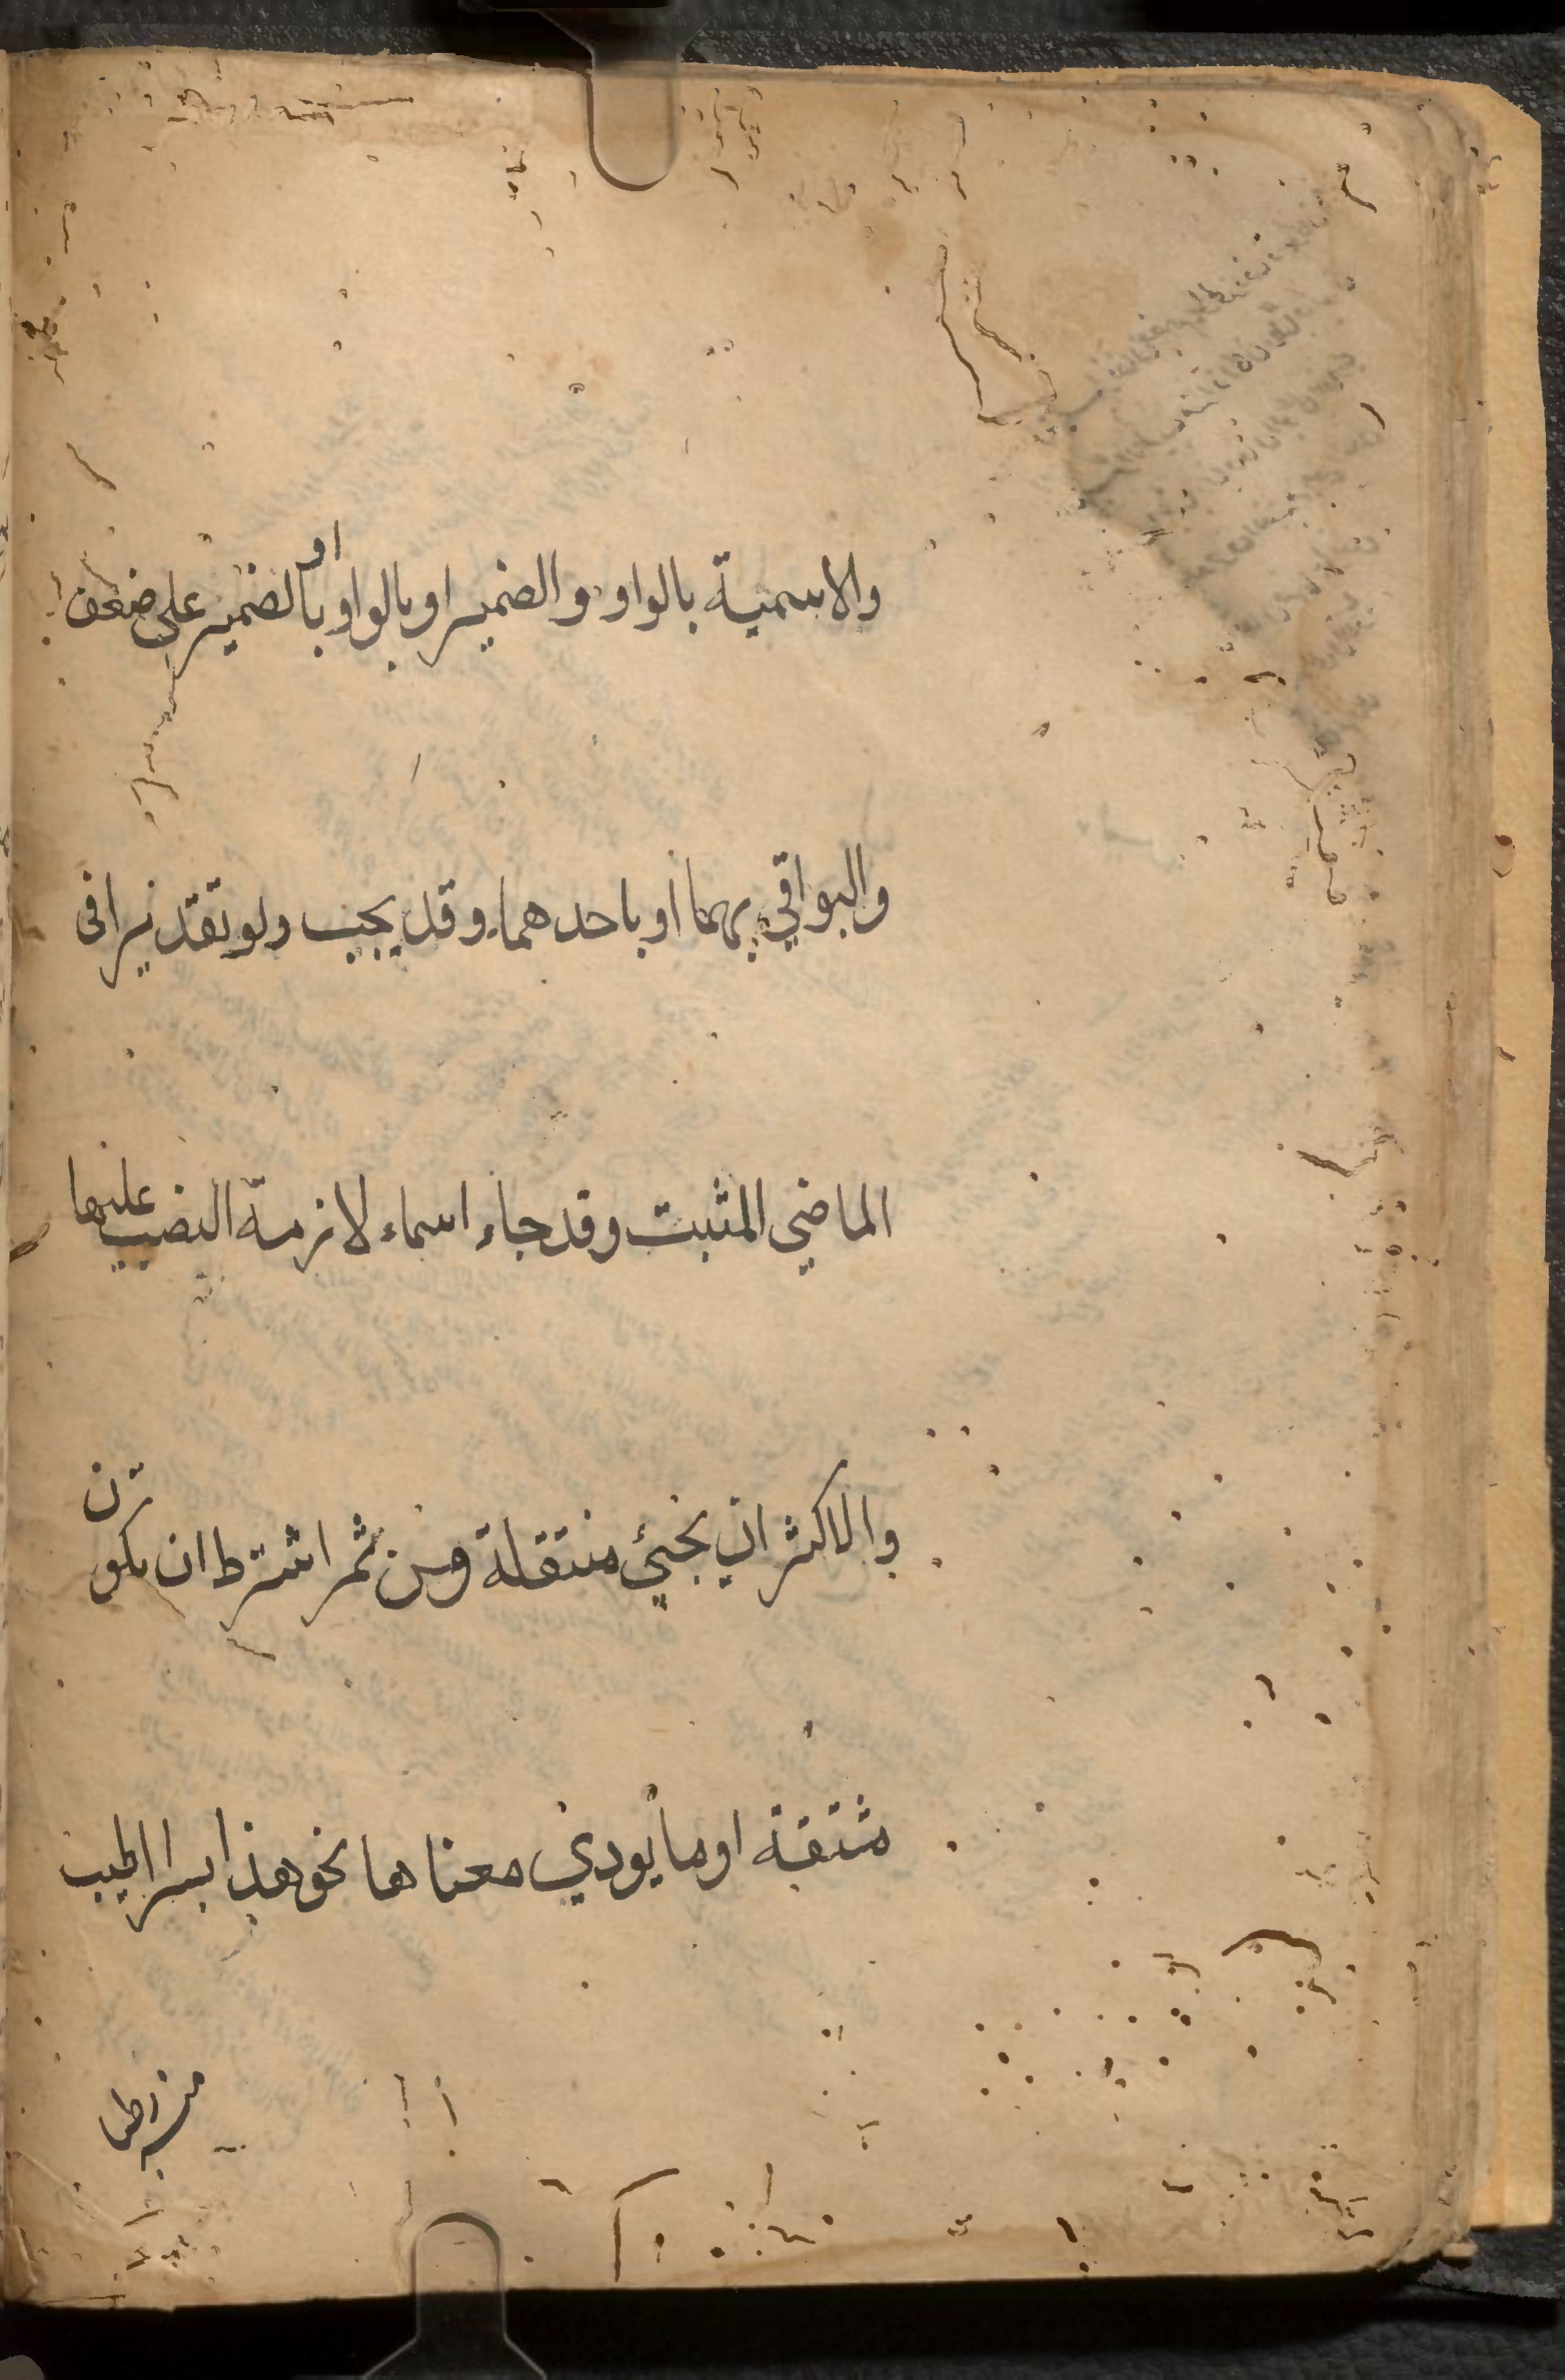 والاسمية بالواو والضمير او بالواو او بالضمير على ضعف
والبواقي بهما او باحدهما وقد يجب ولو تقديرا فى
الماضي المثبت وقد جاء اسماء لازمة النصب عليها
والاكثر ان يجئ منتقلة ومن ثم اشترط ان تكون
مشتقة او ما يودي معناها نحو هذا بسرا اطيب
منه رطبا